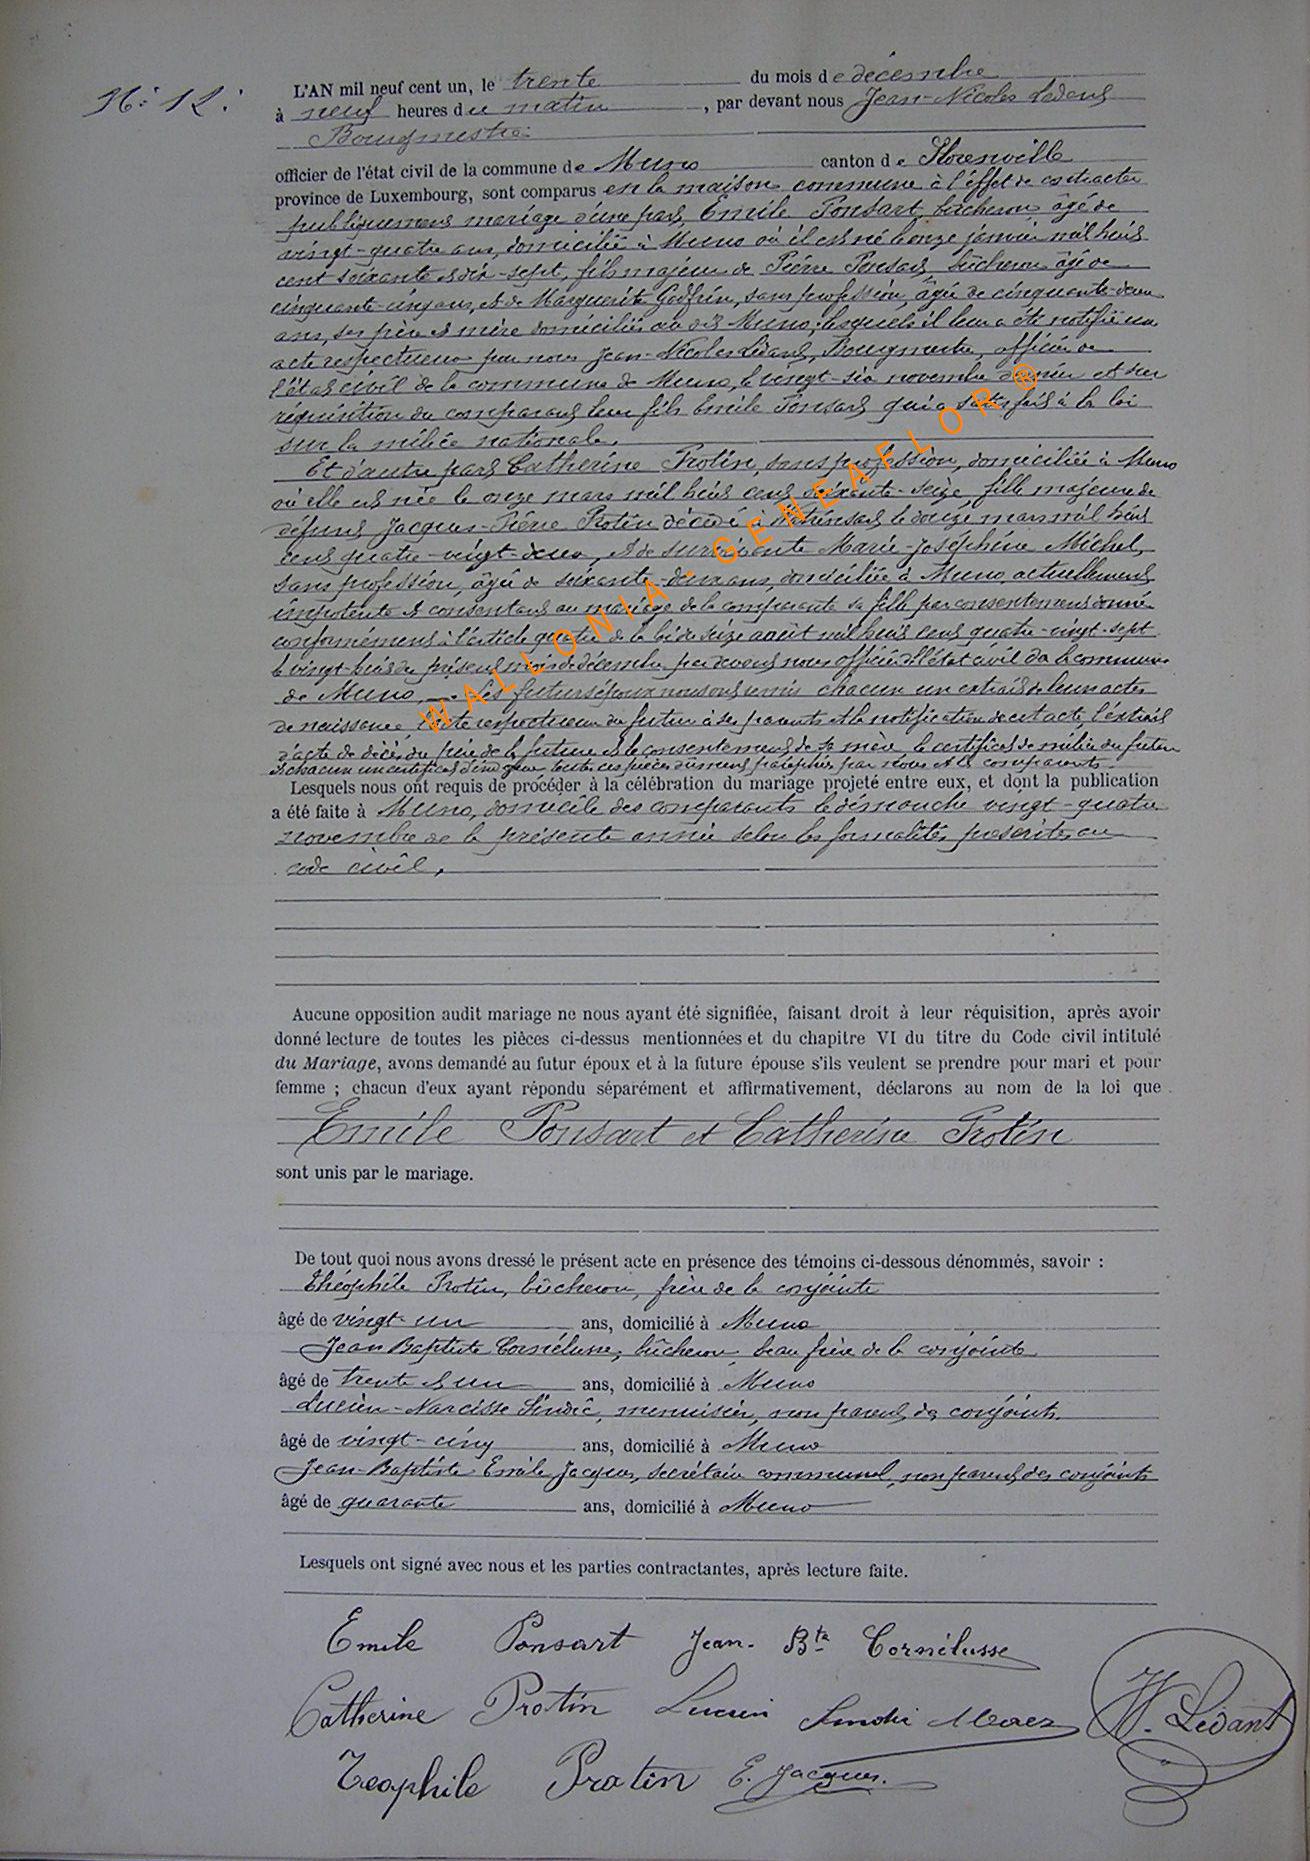 N° 12.
L'AN mil neuf cent un, le trente du mois de décembre
à neuf heures du matin, par devant nous Jean-Nicolas Lédant
Bourgmestre
officier de l'état civil de la commune de Muno canton de Florenville
province de Luxembourg, sont comparus en la maison commune à l'effet de contracter
publiquement mariage d'une part, Emile Ponsart, bûcheron âgé de
vingt-quatre ans, domicilié à Muno où il est né le onze janvier mil huit
cent soixante et dix-sept, fils majeur de Pierre Ponsart bûcheron âgé de
cinquante-cinq ans, et de Marguerite Godfrin, sans profession, âgée de cinquante-deux
ans, ses père et mère domiciliés au dit Muno, lesquels il leur a été notifié un
acte respectueux par nous Jean-Nicolas Lédant, Bourgmestre, officier de
l'état civil de la commune de Muno, le vingt-six novembre dernier et sur
réquisition du comparant leur fils Emile Ponsart qui a satisfait à la loi
sur la milice nationale.
Et d'autre part Catherine Protin, sans profession, domiciliée à Muno
où elle est née le onze mars mil huit cent soixante-seize, fille majeure de
défunt Jacques-Pierre Protin décédé à le douze mars mil huit
cent quatre-vingt-deux, et de survivante Marie-Joséphine Michel,
sans profession, âgée de soixante-deux ans, domiciliée à Muno, actuellement
impotente et consentant au mariage de la comparante sa fille par consentement donné
conformément à l'article quatre de la loi de seize août mil huit cent quatre-vingt-sept
le vingt-huit du présent mois de décembre par devant nous officier de l'état civil de la commune
de Muno, — Les futurs époux nous ont remis chacun un extrait de leur acte
de naissance, l'acte respectueux du futur à ses parents et la notification de cet acte, l'extrait
d'acte de décès du père de la future et le consentement de sa mère, le certificat de milice du futur
et chacun un certificat d'indigence toutes ces pièces dûment paraphées par nous et les comparants
Lesquels nous ont requis de procéder à la célébration du mariage projeté entre eux, et dont la publication
a été faite à Muno, domicile des comparants le dimanche vingt-quatre
novembre de la présente année selon les formalités prescrites au
code civil.
Aucune opposition audit mariage ne nous ayant été signifiée, faisant droit à leur réquisition, après avoir
donné lecture de toutes les pièces ci-dessus mentionnées et du chapitre VI du titre du Code civil intitulé
du Mariage, avons demandé au futur époux et à la future épouse s'ils veulent se prendre pour mari et pour
femme ; chacun d'eux ayant répondu séparément et affirmativement, déclarons au nom de la loi que
Emile Ponsart et Catherine Protin
sont unis par le mariage.
De tout quoi nous avons dressé le présent acte en présence des témoins ci-dessous dénommés, savoir :
Théophile Protin, bûcheron, frère de la conjointe
âgé de vingt-un ans, domicilié à Muno
Jean Baptiste Cornélusse, bûcheron, beau frère de la conjointe
âgé de trente et un ans, domicilié à Muno
Lucien-Narcisse Sindic, menuisier, non parent des conjoints
âgé de vingt-cinq ans, domicilié à Muno
Jean-Baptiste Emile Jacques, secrétaire communal, non parent des conjoints
âgé de quarante ans, domicilié à Muno
Lesquels ont signé avec nous et les parties contractantes, après lecture faite.
Emile Ponsart Jean-Bte Cornélusse
Catherine Protin Lucien N. Lédant
Teophile Protin E. Jacques.
WALLONIA - GENEAFLOR ®